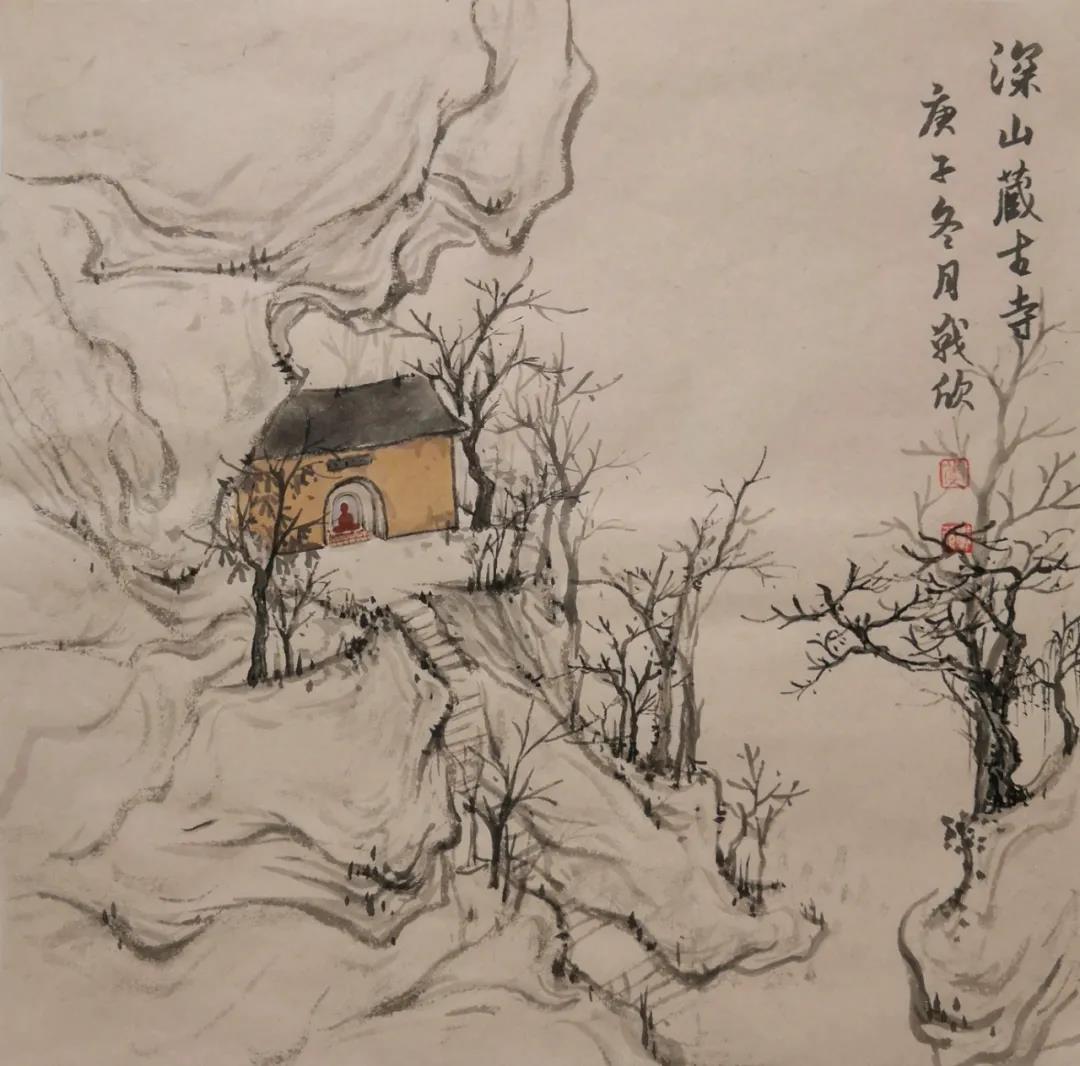 深山藏古寺
庚子冬月戰欣